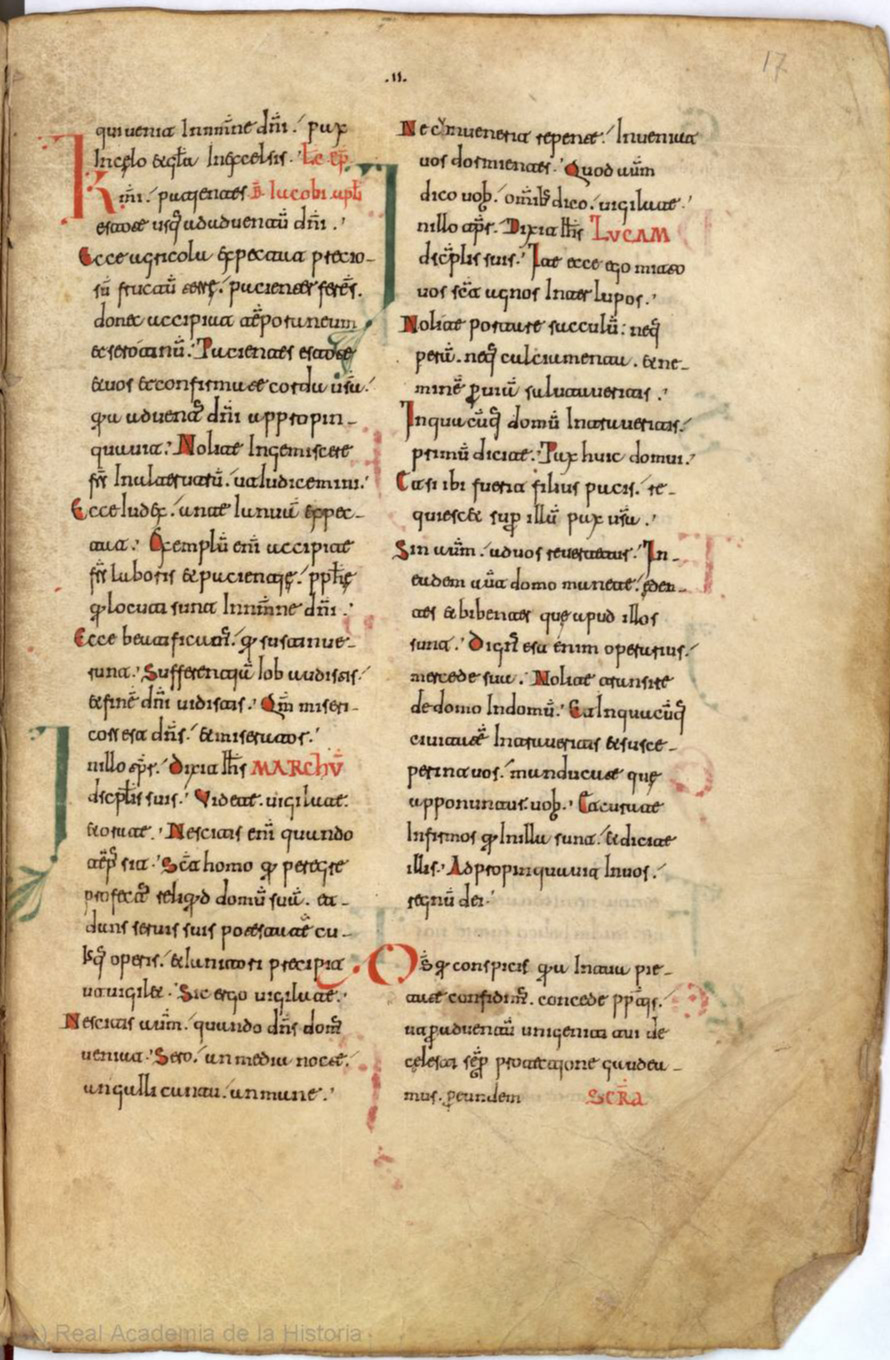 17
.II.
qui uenit In nm̄ne dnī. pax
In celo & glā In excelsis. Lc̄ ep̄
Kmī. patientes b̄ Iacobi apłi
estote usq̄ ad aduentū dnī.
Ecce agricola expectat precio-
sū fructū terrȩ. patienter ferēs.
donec accipiat tēporaneum
& serotinū. Patientes estote
& uos & confirmate corda urā.
qm̄ aduent̄ dnī appropin-
quauit. Nolite Ingemiscere
frs̄ In alterutrū. ut aludicemini.
Ecce Iudex. ante Ianuā expec-
tat. Exemplū enī accipite
frs̄ laboris & patientiȩ. pphȩ
q̄ locuti sunt In nm̄ne dnī.
Ecce beatificam̄. q̄ sustinue-
runt. Sufferentiā Iob audistis.
& finē dnī uidistis. Qm̄ miseri-
cors est dns̄. & miserator.
nillo tp̄r. dixit Ihs̄ MARChū
discplis suis. Videte. uigilate.
& orate. Nescitis enī quando
tēp̄ sit. Sct̄a homo q̄ peregre
profect̄ reliquid domū suā. &
dans seruis suis potestatē cu-
Iusq̄ operis. & Ianitori precipiat
ut uigilet. Sic ergo uigilate.
Nescitis aūm. quando dns̄ dom̄
ueniat. Sero. an media nocte.
an galli cantu. an mane.
Ne cū uenerit repente. Inueniat
uos dormientes. Quod aūm
dico uob̄. omīb̄ dico. uigilate.
nillo tp̄r. Dixit Ihs̄ LUCAM
discplis suis. Ite ecce ego mitto
uos sct̄a agnos Inter lupos.
Nolite portare sacculū: neq̄
perā. neq̄ calciamenta. & ne-
minē p̄ uiā salutaueritis.
In quacūq̄ domū Intraueritis.
primū dicite. Pax huic domui.
Et si ibi fuerit filius pacis. re-
quiescet sup̄ illū pax urā.
Sin aūm. ad uos reuertetur. In-
eadem aūt domo manete. eden-
tes & bibentes quȩ apud illos
sunt. Dign̄ est enim operarius.
mercede sua. Nolite transire
de domo In domū. Et In quacūq̄
ciuitatē Intraueritis & susce-
perint uos. manducate quȩ
apponuntur uob̄. Et curate
Infirmos q̄ In illa sunt. & dicite
illis. Adpropinquauit In uos.
regnū dei.
Ds̄ q̄ conspicis qm̄ In tua pie-
tate confidim̄. concede pp̄atis.
ut p̄ aduentū unigeniti tui de
cȩlesti sēp̄ protectione gaudea-
mus. p̄ eundem SCR̄A
(c) Real Academia de la Historia